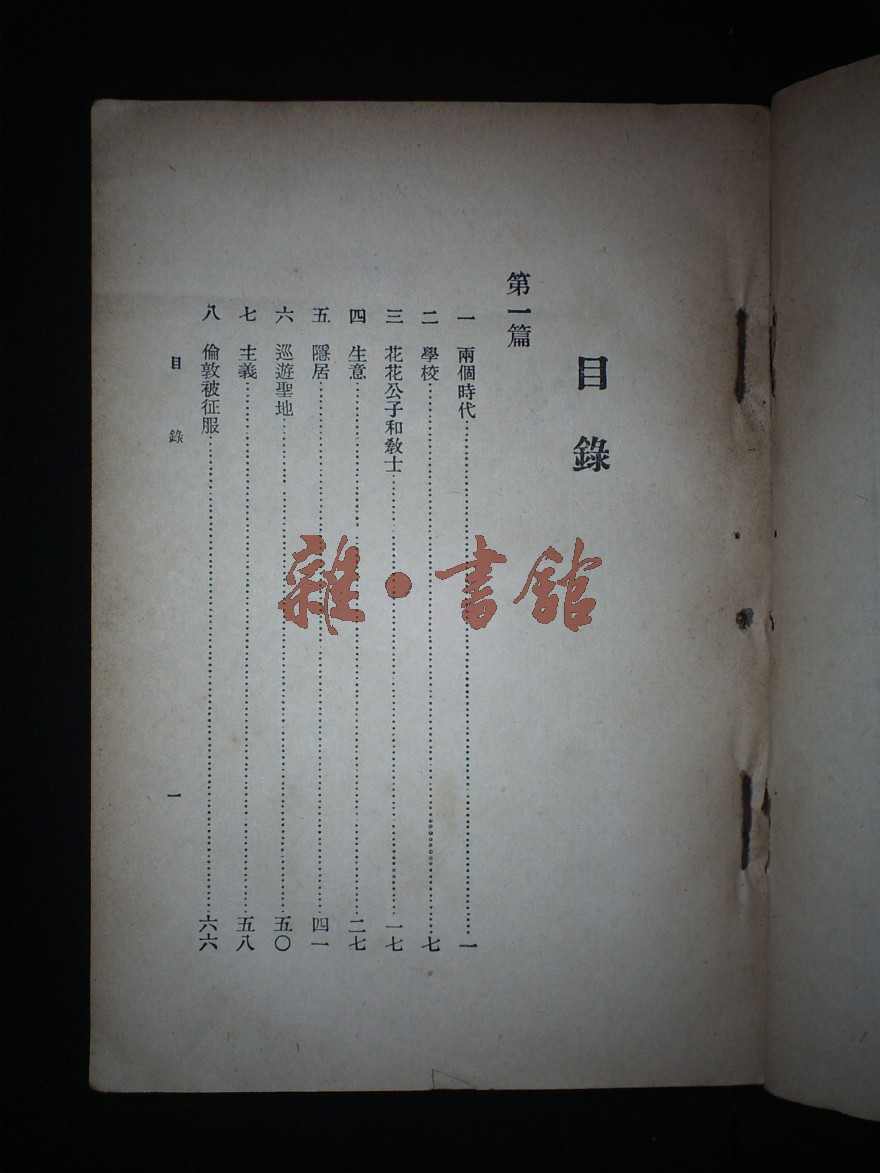 目錄
第一篇
一 兩個時代……一
二 學校……七
三 花花公子和教士……一七
四 生意……二七
五 隱居……四一
六 巡遊聖地……五〇
七 主義……五八
八 倫敦被征服……六六
目錄 一
雜·書館